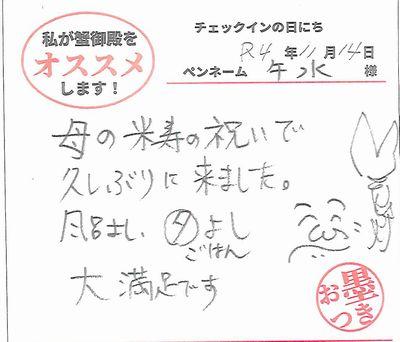 私が蟹御殿を
オススメ
します！
チェックインの日にち
R4 年 11 月 14 日
ペンネーム 午水 様
母の米寿の祝いで
久しぶりに来ました。
風呂よし、夕よし
ごはん
大満足です
お墨つき